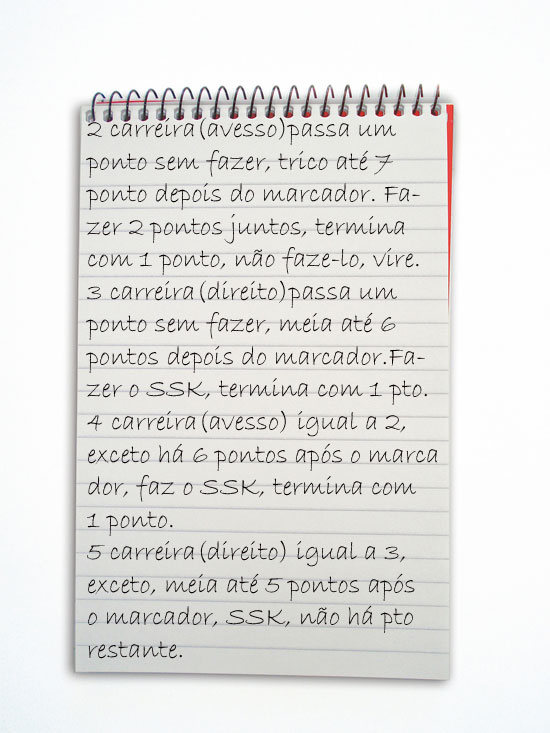 2 carreira(avesso)passa um
ponto sem fazer, trico até 7
ponto depois do marcador. Fa-
zer 2 pontos juntos, termina
com 1 ponto, não faze-lo, vire.
3 carreira(direito)passa um
ponto sem fazer, meia até 6
pontos depois do marcador.Fa-
zer o SSK, termina com 1 pto.
4 carreira(avesso) igual a 2,
exceto há 6 pontos após o marca
dor, faz o SSK, termina com
1 ponto.
5 carreira(direito) igual a 3,
exceto, meia até 5 pontos após
o marcador, SSK, não há pto
restante.